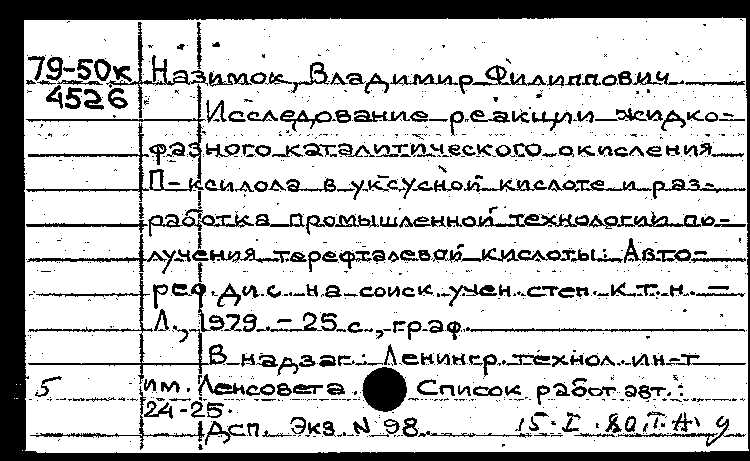 79-50к Назимок, Владимир Филиппович
4526
Исследование реакции жидко-
фазного каталитического окисления
П-ксилола в уксусной кислоте и раз-
работка промышленной технологии по-
лучения терефталевой кислоты: Авто-
реф. дис. на соиск. учен. степ. к.т.н. —
Л., 1979. – 25 с., граф.
В надзаг.: Ленингр. технол. ин-т
5 им. Ленсовета. Список работ авт.:
24-25.
Дсп. Экз. N 98. 15.I.80.